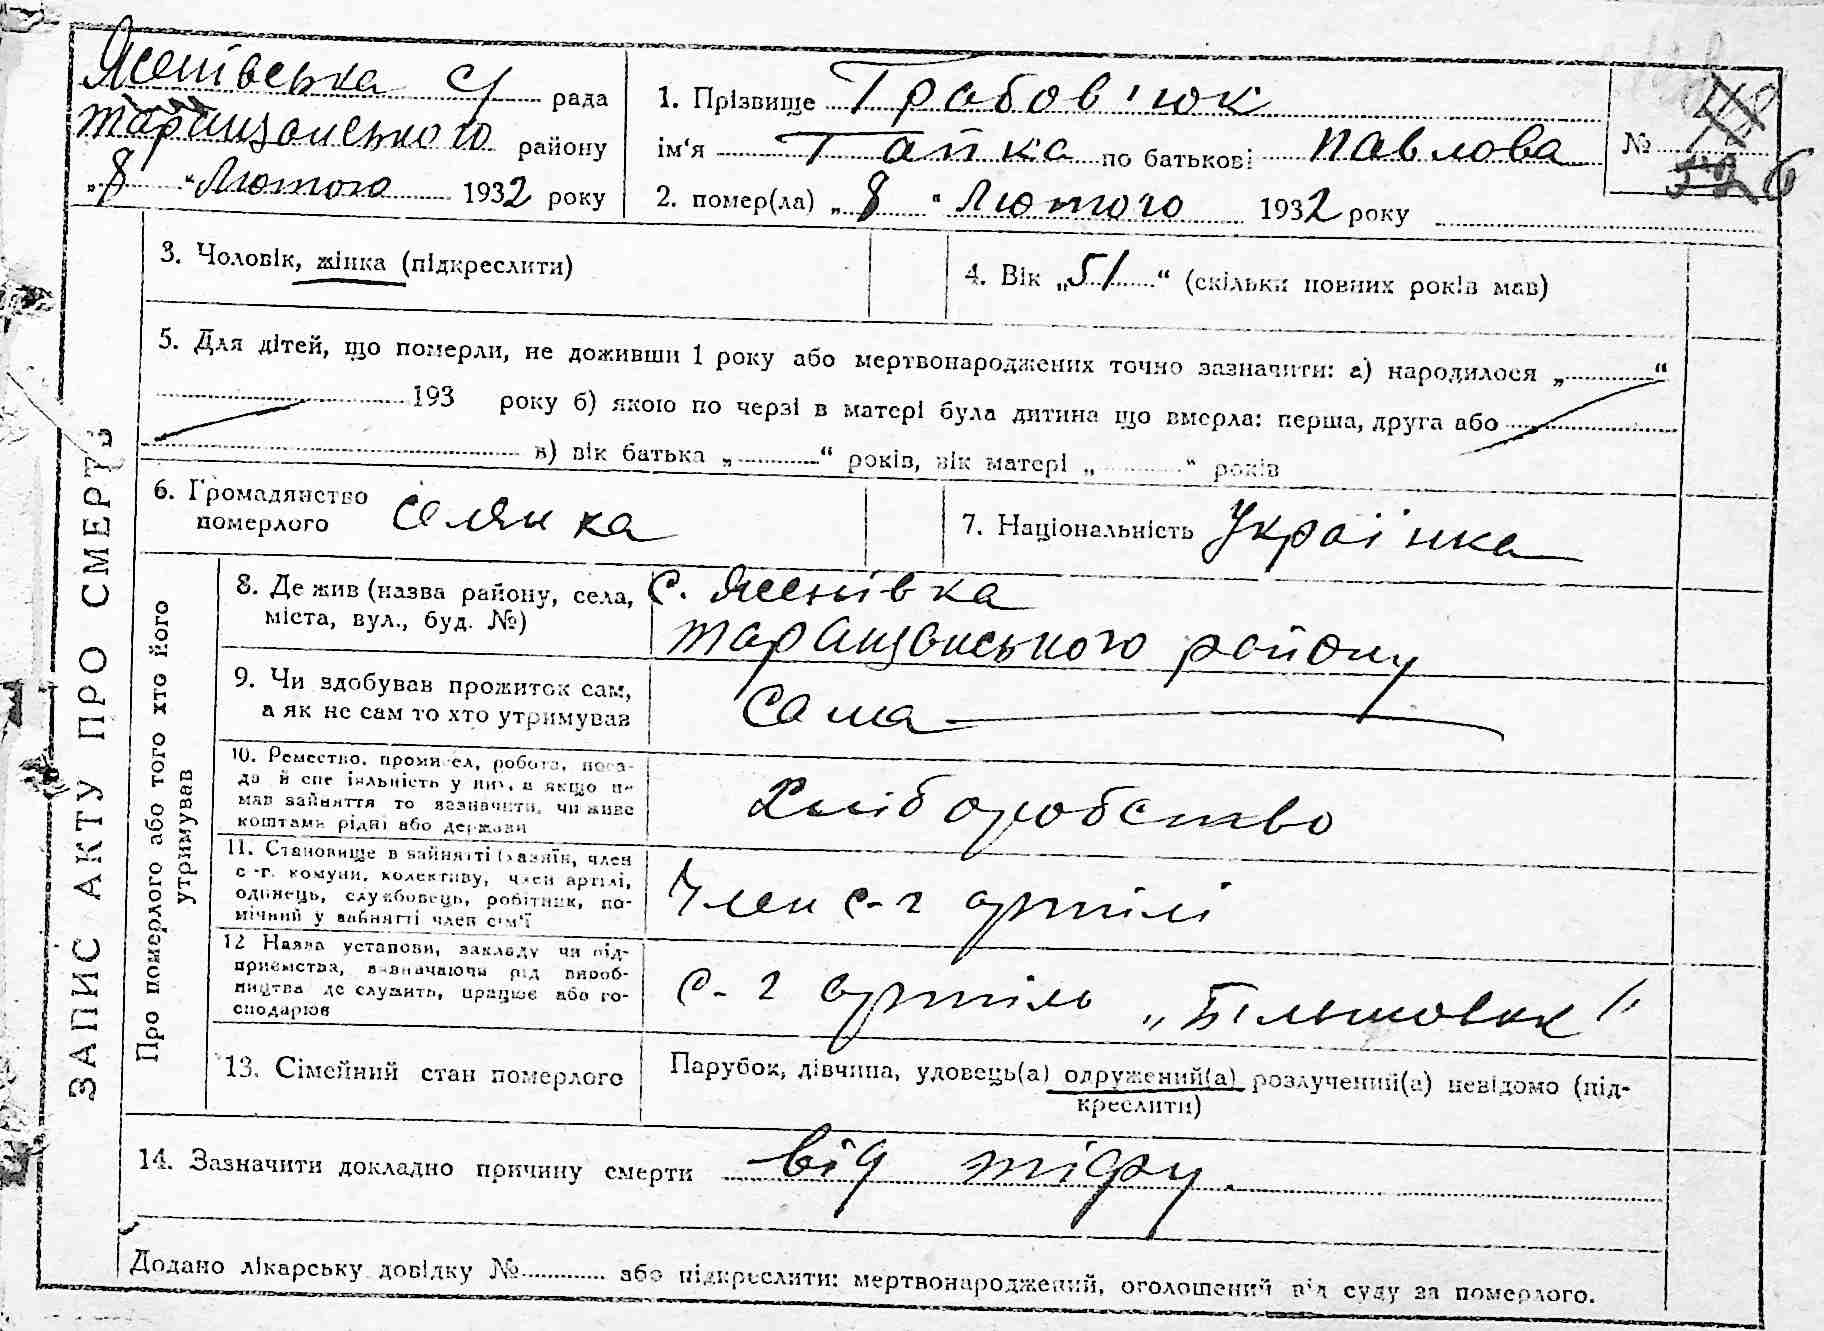 ЗАПИС АКТУ ПРО СМЕРТЬ
Ясенівська с/ рада
Таращанського району
„8“ Лютого 1932 року
1. Прізвище Грабов'юк
ім'я Гапка по батькові Павлова
2. помер(ла) „8“ Лютого 1932 року
№ 6
3. Чоловік, жінка (підкреслити)
4. Вік „51“ (скільки повних років мав)
5. Для дітей, що померли, не доживши 1 року або мертвонароджених точно зазначити: а) народилося „ “
193 року б) якою по черзі в матері була дитина що вмерла: перша, друга або
в) вік батька „ “ років, вік матері „ “ років
6. Громадянство
померлого селянка
7. Національність Українка
Про померлого або того хто його
утримував
8. Де жив (назва району, села,
міста, вул., буд. №)
с. Ясенівка
Таращанського району
9. Чи здобував прожиток сам,
а як не сам то хто утримував
Сама
10. Ремество, промисел, робота, поса-
да й спеціяльність у них, а якщо не
мав зайняття то зазначити, чи живе
коштами рідні або держави
Хліборобство
11. Становище в зайнятті (хазяїн, член
с.-г. комуни, колективу, член артілі,
одинець, службовець, робітник, по-
мічний у зайнятті член сім'ї
Член с-г артілі
12 Назва установи, закладу чи під-
приємства, визначаючи рід вироб-
ництва де служить, працює або го-
сподарює
с-г артіль „Більшовик"
13. Сімейний стан померлого
Парубок, дівчина, удовець(а) одружений(а) розлучений(а) невідомо (під-
креслити)
14. Зазначити докладно причину смерти від тіфу.
Додано лікарську довідку № або підкреслити: мертвонароджений, оголошений від суду за померлого.